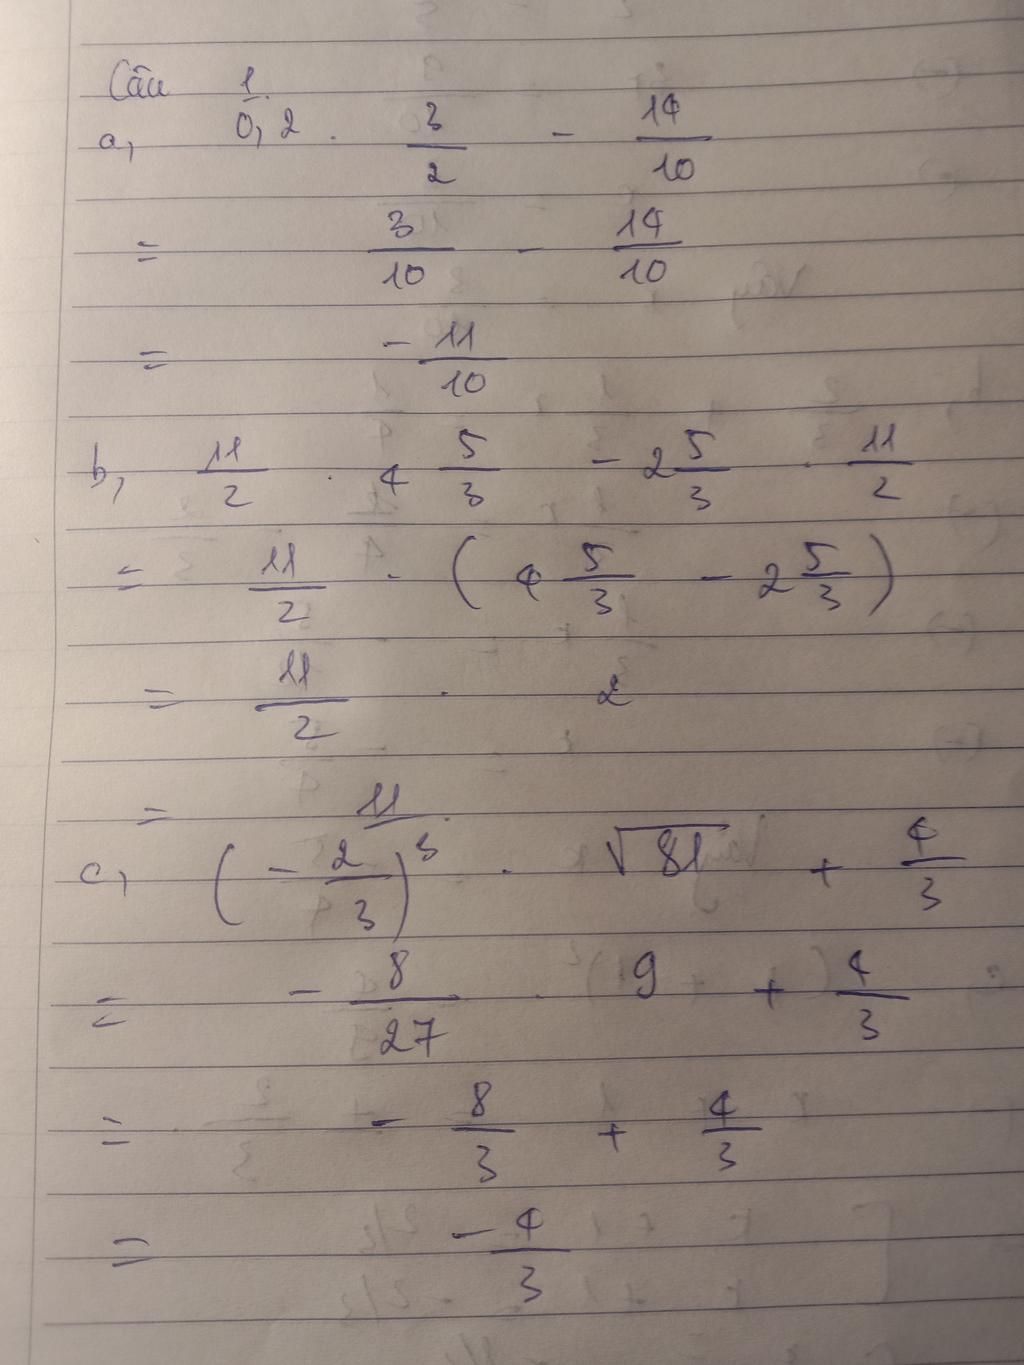 Câu 1.
a, 0,2 . 3/2 - 14/10
= 3/10 - 14/10
= - 11/10
b, 11/2 . 4 5/3 - 2 5/3 . 11/2
= 11/2 . ( 4 5/3 - 2 5/3 )
= 11/2 . 2
= 11.
c, ( - 2/3 )³ . √81 + 4/3
= - 8/27 . 9 + 4/3
= - 8/3 + 4/3
= - 4/3